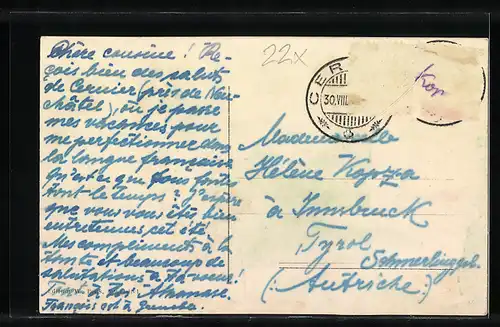 Chère cousine ! Re-
çois bien des saluts
de Cernier (près de Neu-
châtel) où je passe
mes vacances pour
me perfectionner dans
la langue française
Qu'est-ce que vous faites
tout le temps? J'espère
que vous vous êtes bien
entretenues cet été.
Mes compliments à la
tante et beaucoup de
salutations à
François est à
22x
CER
30.VIII.
Kor
Mademoiselle
Hélène Kopza
à Innsbruck
Tyrol
(Autriche)